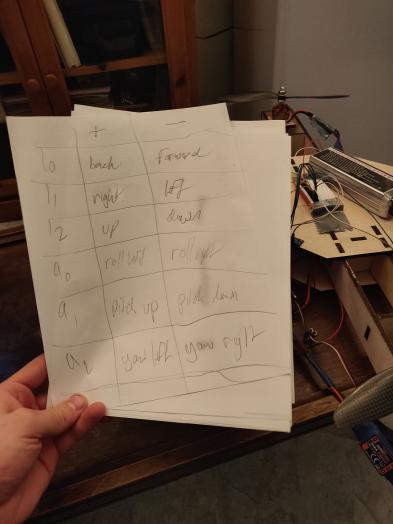 + -
l0 back forward
l1 right left
l2 up down
a0 roll left roll right
a1 pitch up pitch down
a2 yaw left yaw right